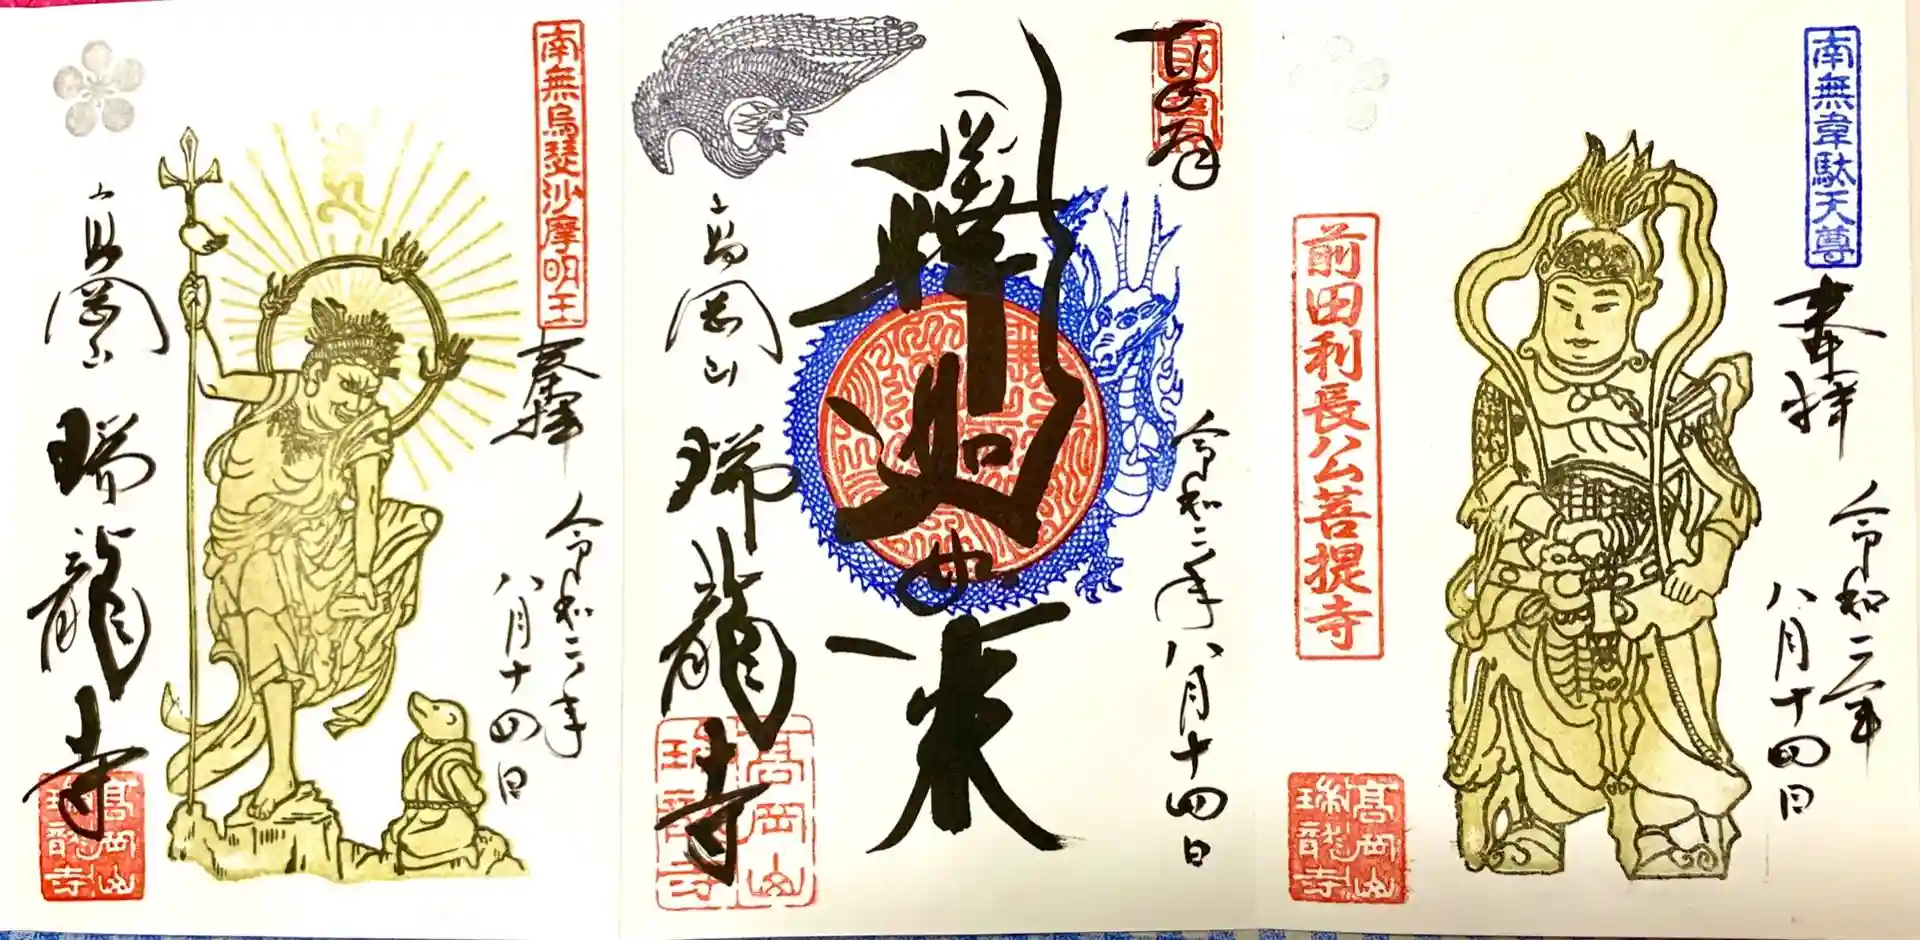 南無烏瑟沙摩明王
奉拝
令和二年
八月十四日
高岡山
瑞龍寺
高岡山
瑞龍寺
奉拝
令和二年八月十四日
釋迦如来
高岡山
瑞龍寺
高岡山
瑞龍寺
南無韋駄天尊
奉拝
令和二年
八月十四日
前田利長公菩提寺
高岡山
瑞龍寺